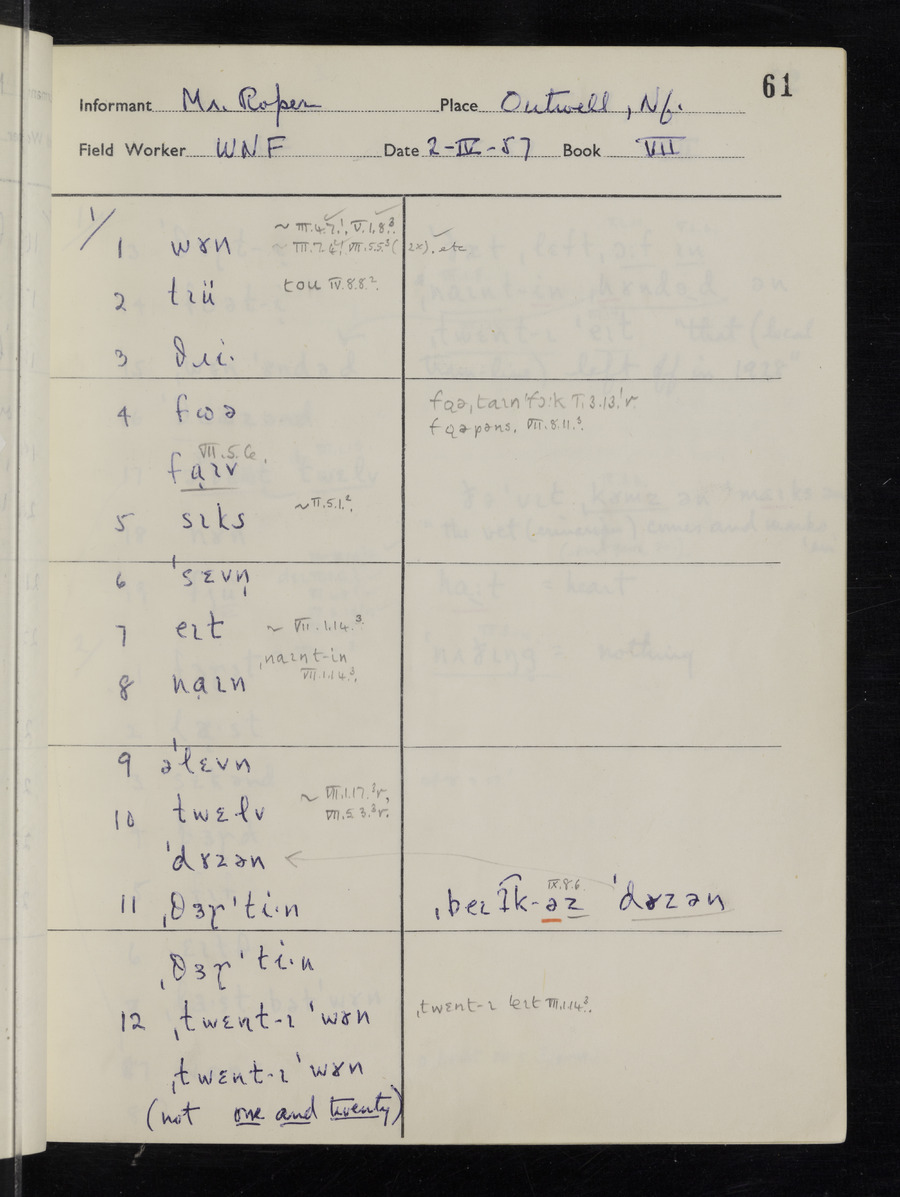 61
Informant Mr. Roper Place Outwell, Nf.
Field Worker WNF Date 2-IV-57 Book VII
1/
1 wɤn ~ III.4.7.¹, V.1.8.³
~ III.7.4¹, VII.5.5³ (2x). etc
2 tɪü tou IV.8.8.²
3 θɹi·
4 fɷə fɑə, taɪn'fɔ:k I.3.13.¹r.
fɑəpəns, VII.8.11.³
VII.5.6.
fạɪv
5 sɪks ~II.5.1.²
6 ˈsɛvn̩
7 eɪt ~ VII.1.14.³
ˌnaɪnt-in
VII.1.14.³
8 nạɪn
9 əˈlɛvn
10 twɛlv ~ VII.1.17.³r,
VII.5.3.³r.
ˈdɤzən
11 ˌθɜɽˈti·n ˌbeɪɪk-əz IX.8.6. ˈdɤzən
ˌθɜɽˈti·n
12 ˌtwɛnt-ɪˈwɤn ˌtwɛnt-ɪ ˈeɪt VII.1.14³.
ˌtwɛnt-ɪˈwɤn
(not one and twenty)